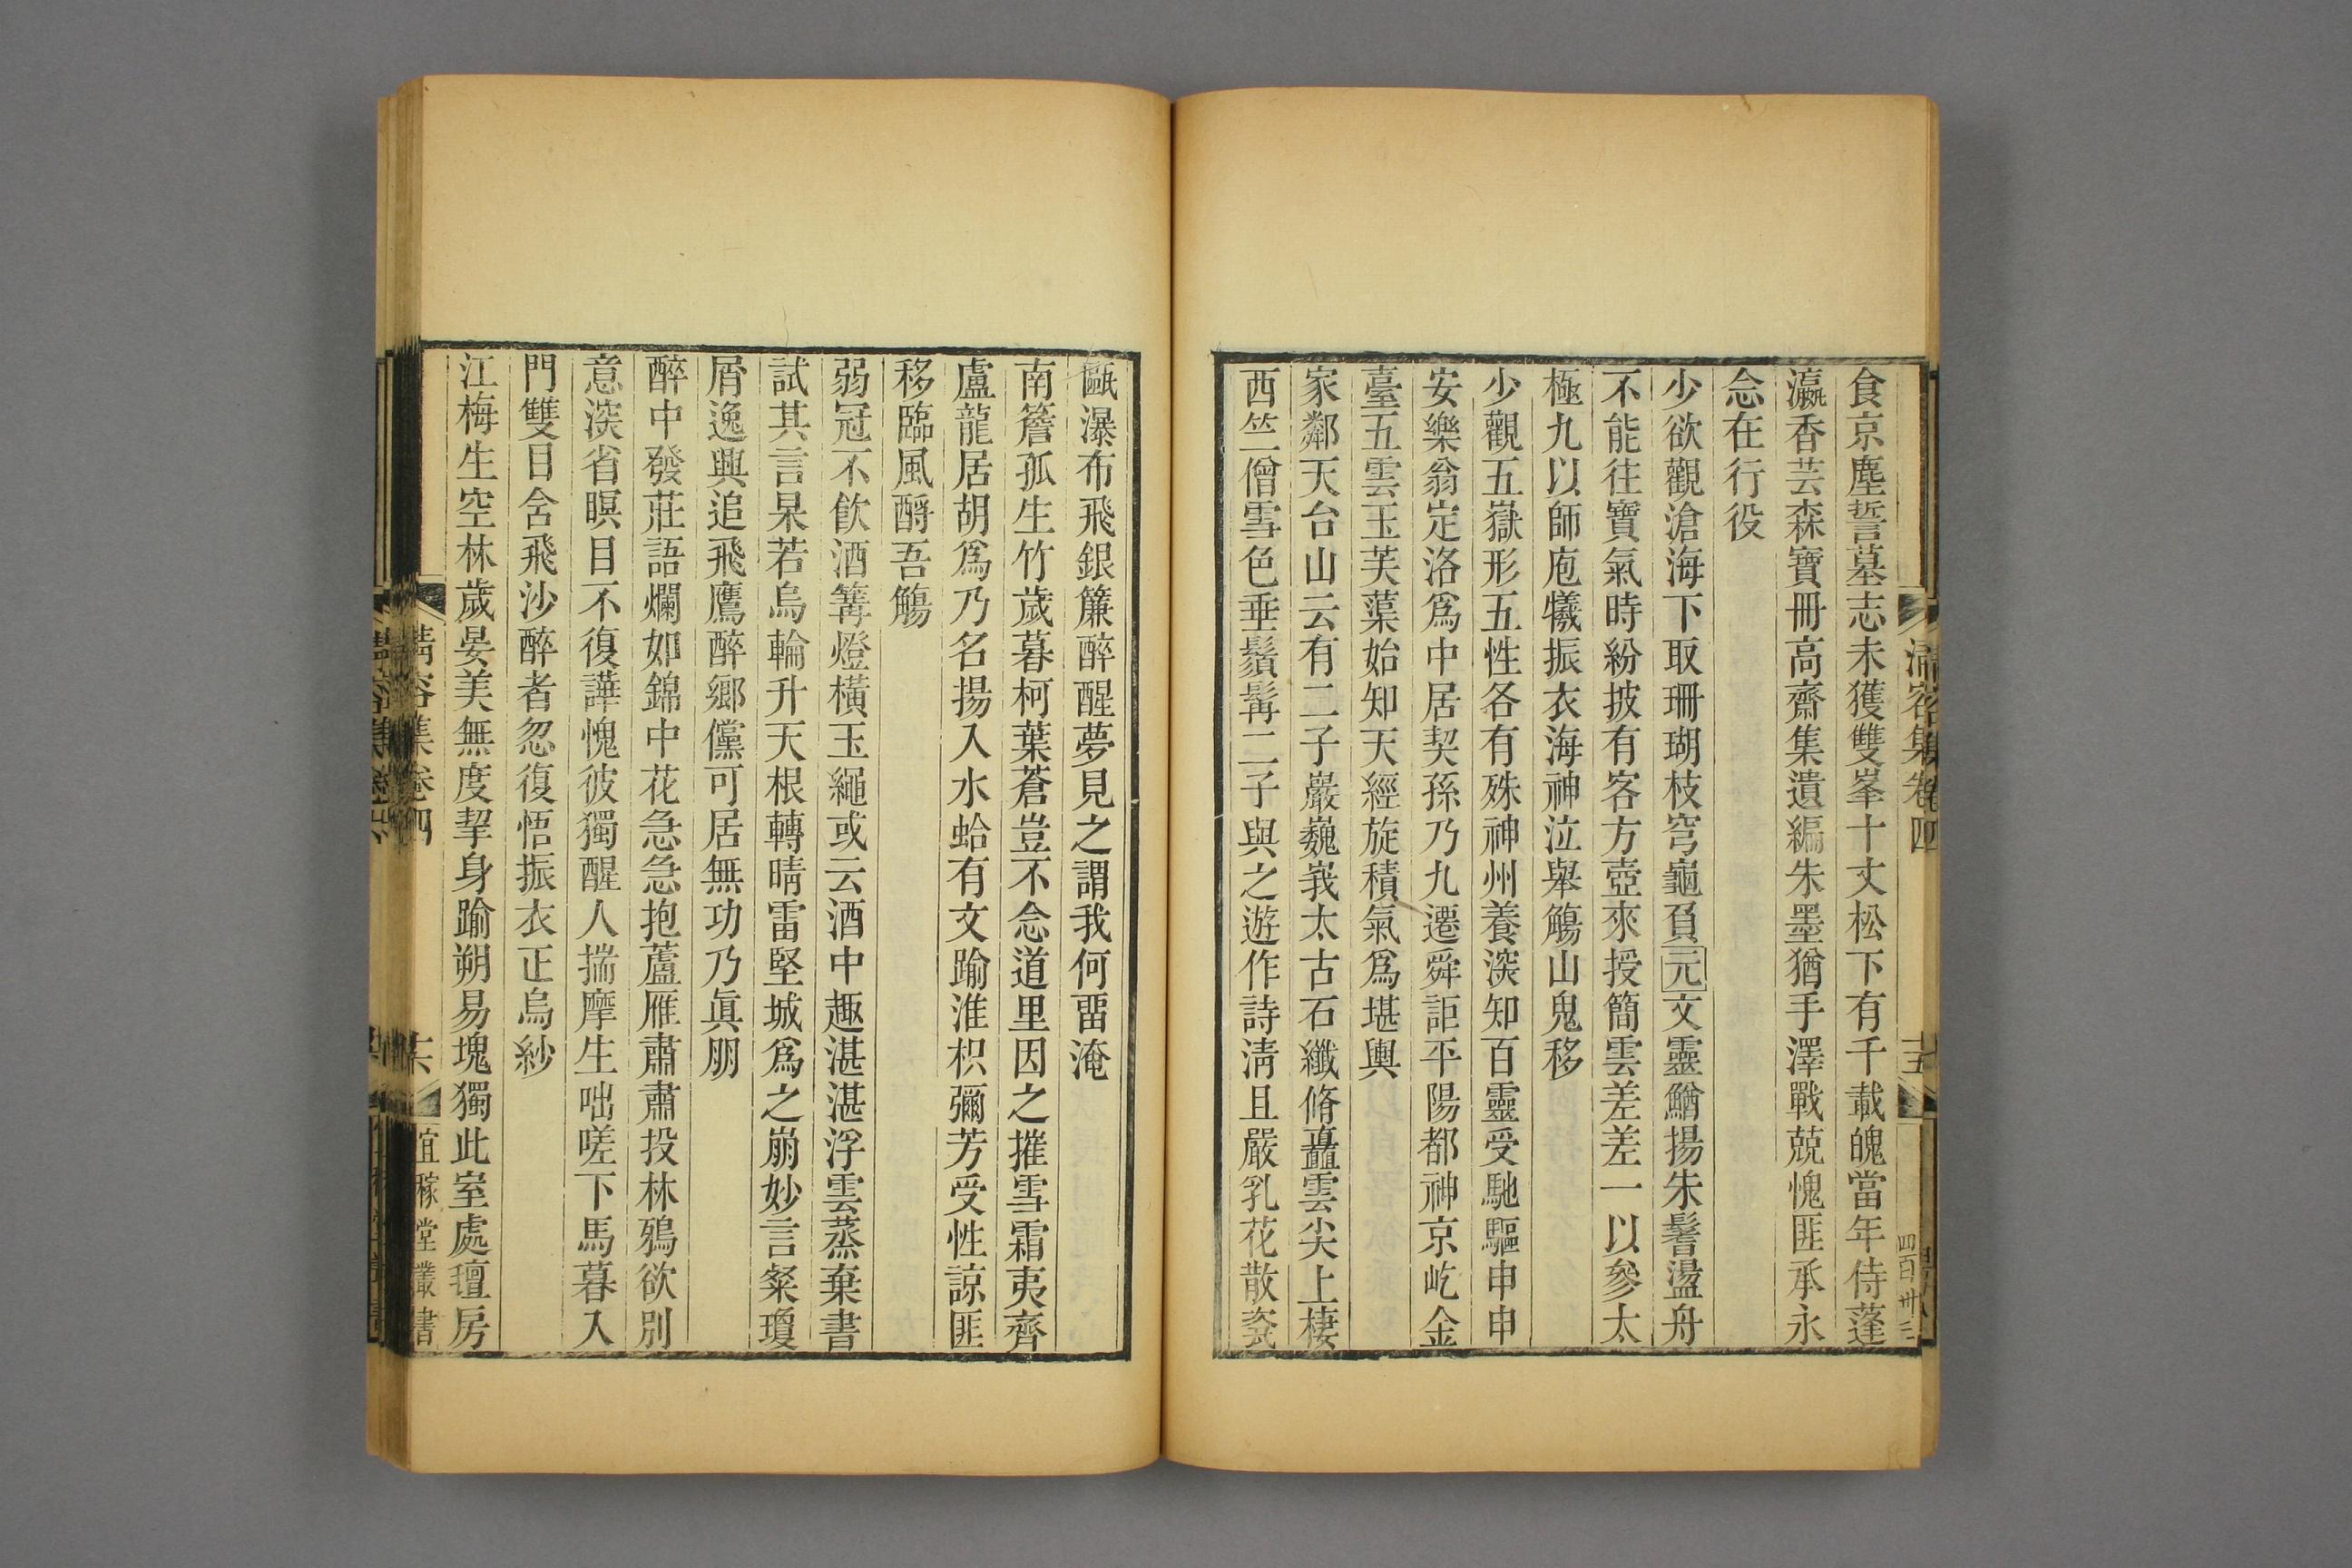 食京塵誓墓志未獲雙峯十丈松下有千載魄當年侍蓬
瀛香芸森寶冊高齋集遺編朱墨猶手澤戰兢愧匪承永
念在行役
少欲觀滄海下取珊瑚枝穹龜負元文靈鰌揚朱鬐盪舟
不能往寶氣時紛披有客方壺來授簡雲差差一以參太
極九以師庖犧振衣海神泣舉觴山鬼移
少觀五嶽形五性各有殊神州養深知百靈受馳驅申申
安樂翁定洛爲中居契孫乃九遷舜詎平陽都神京屹金
臺五雲玉芙蕖始知天經旋積氣爲堪輿
家鄰天台山云有二子巖巍峩太古石纖脩矗雲尖上棲
西竺僧雪色垂鬚髯二子與之遊作詩淸且嚴乳花散瓷
甌瀑布飛銀簾醉醒夢見之謂我何畱淹
南簷孤生竹歲暮柯葉蒼豈不念道里因之摧雪霜夷齊
盧龍居胡爲乃名揚入水蛤有文踰淮枳彌芳受性諒匪
移臨風酹吾觴
弱冠不飮酒篝燈橫玉繩或云酒中趣湛湛浮雲蒸棄書
試其言杲若烏輪升天根轉晴雷堅城爲之崩妙言粲瓊
屑逸興追飛鷹醉鄉儻可居無功乃眞朋
醉中發莊語爛如錦中花急急抱蘆雁肅肅投林鴉欲別
意深省瞑目不復譁愧彼獨醒人揣摩生咄嗟下馬暮入
門雙目舍飛沙醉者忽復悟振衣正烏紗
江梅生空林歲晏美無度挈身踰朔易塊獨此室處璮房
清容集卷四
十五
四百卅三
清容集卷四
十六
宜稼堂叢書